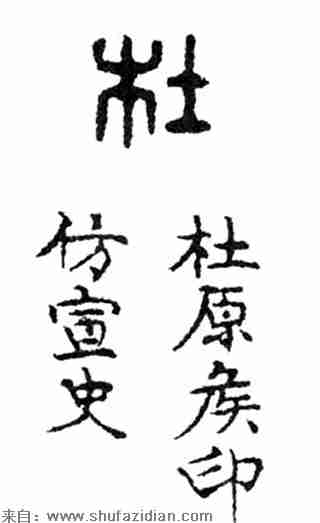 杜
杜原矦印
仿宣史
来自：www.shufazidian.com